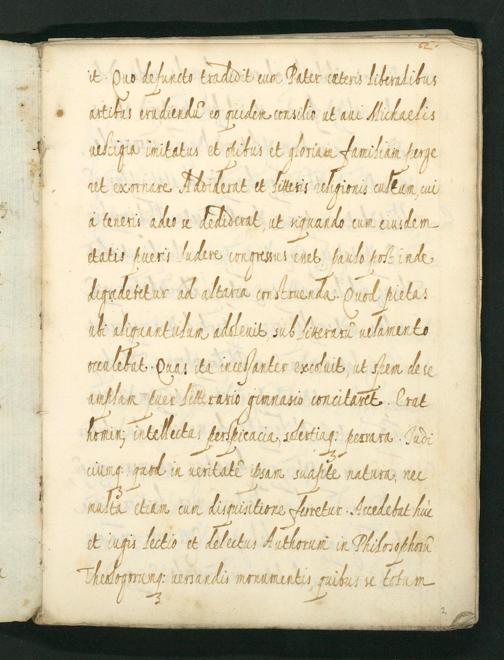 62.
it. Quo defuncto tradidit eum Pater cæteris liberalibus
artibus erudiendũ eo quidem consilio ut aui Michaelis
uestigia imitatus et opibus et gloria familiam perge
ret exornare. Addiderat et litteris religionis cultum, cui
a teneris adeo se dediderat, ut siquando cum eiusdem
etatis pueris ludere congressus esset, paulo post inde
digrederetur ad altaria construenda. Quod pietas
ubi aliquantulum adoleuit sub litterarũ uelamento
occulebat. Quas ita incessanter excoluit, ut spem de se
amplam puer litterario gimnasio concitaret. Erat
homini intellectus perspicacia, solertiaq; perrara. Judi
ciumq; quod in ueritatẽ ipsam suapte natura, nec
multa etiam cum disquisitione ferretur. Accedebat huic
et iugis lectio et delectus Authorum in Philosophorũ
Theologorumq; uersandis monumentis, quibus se totum
2